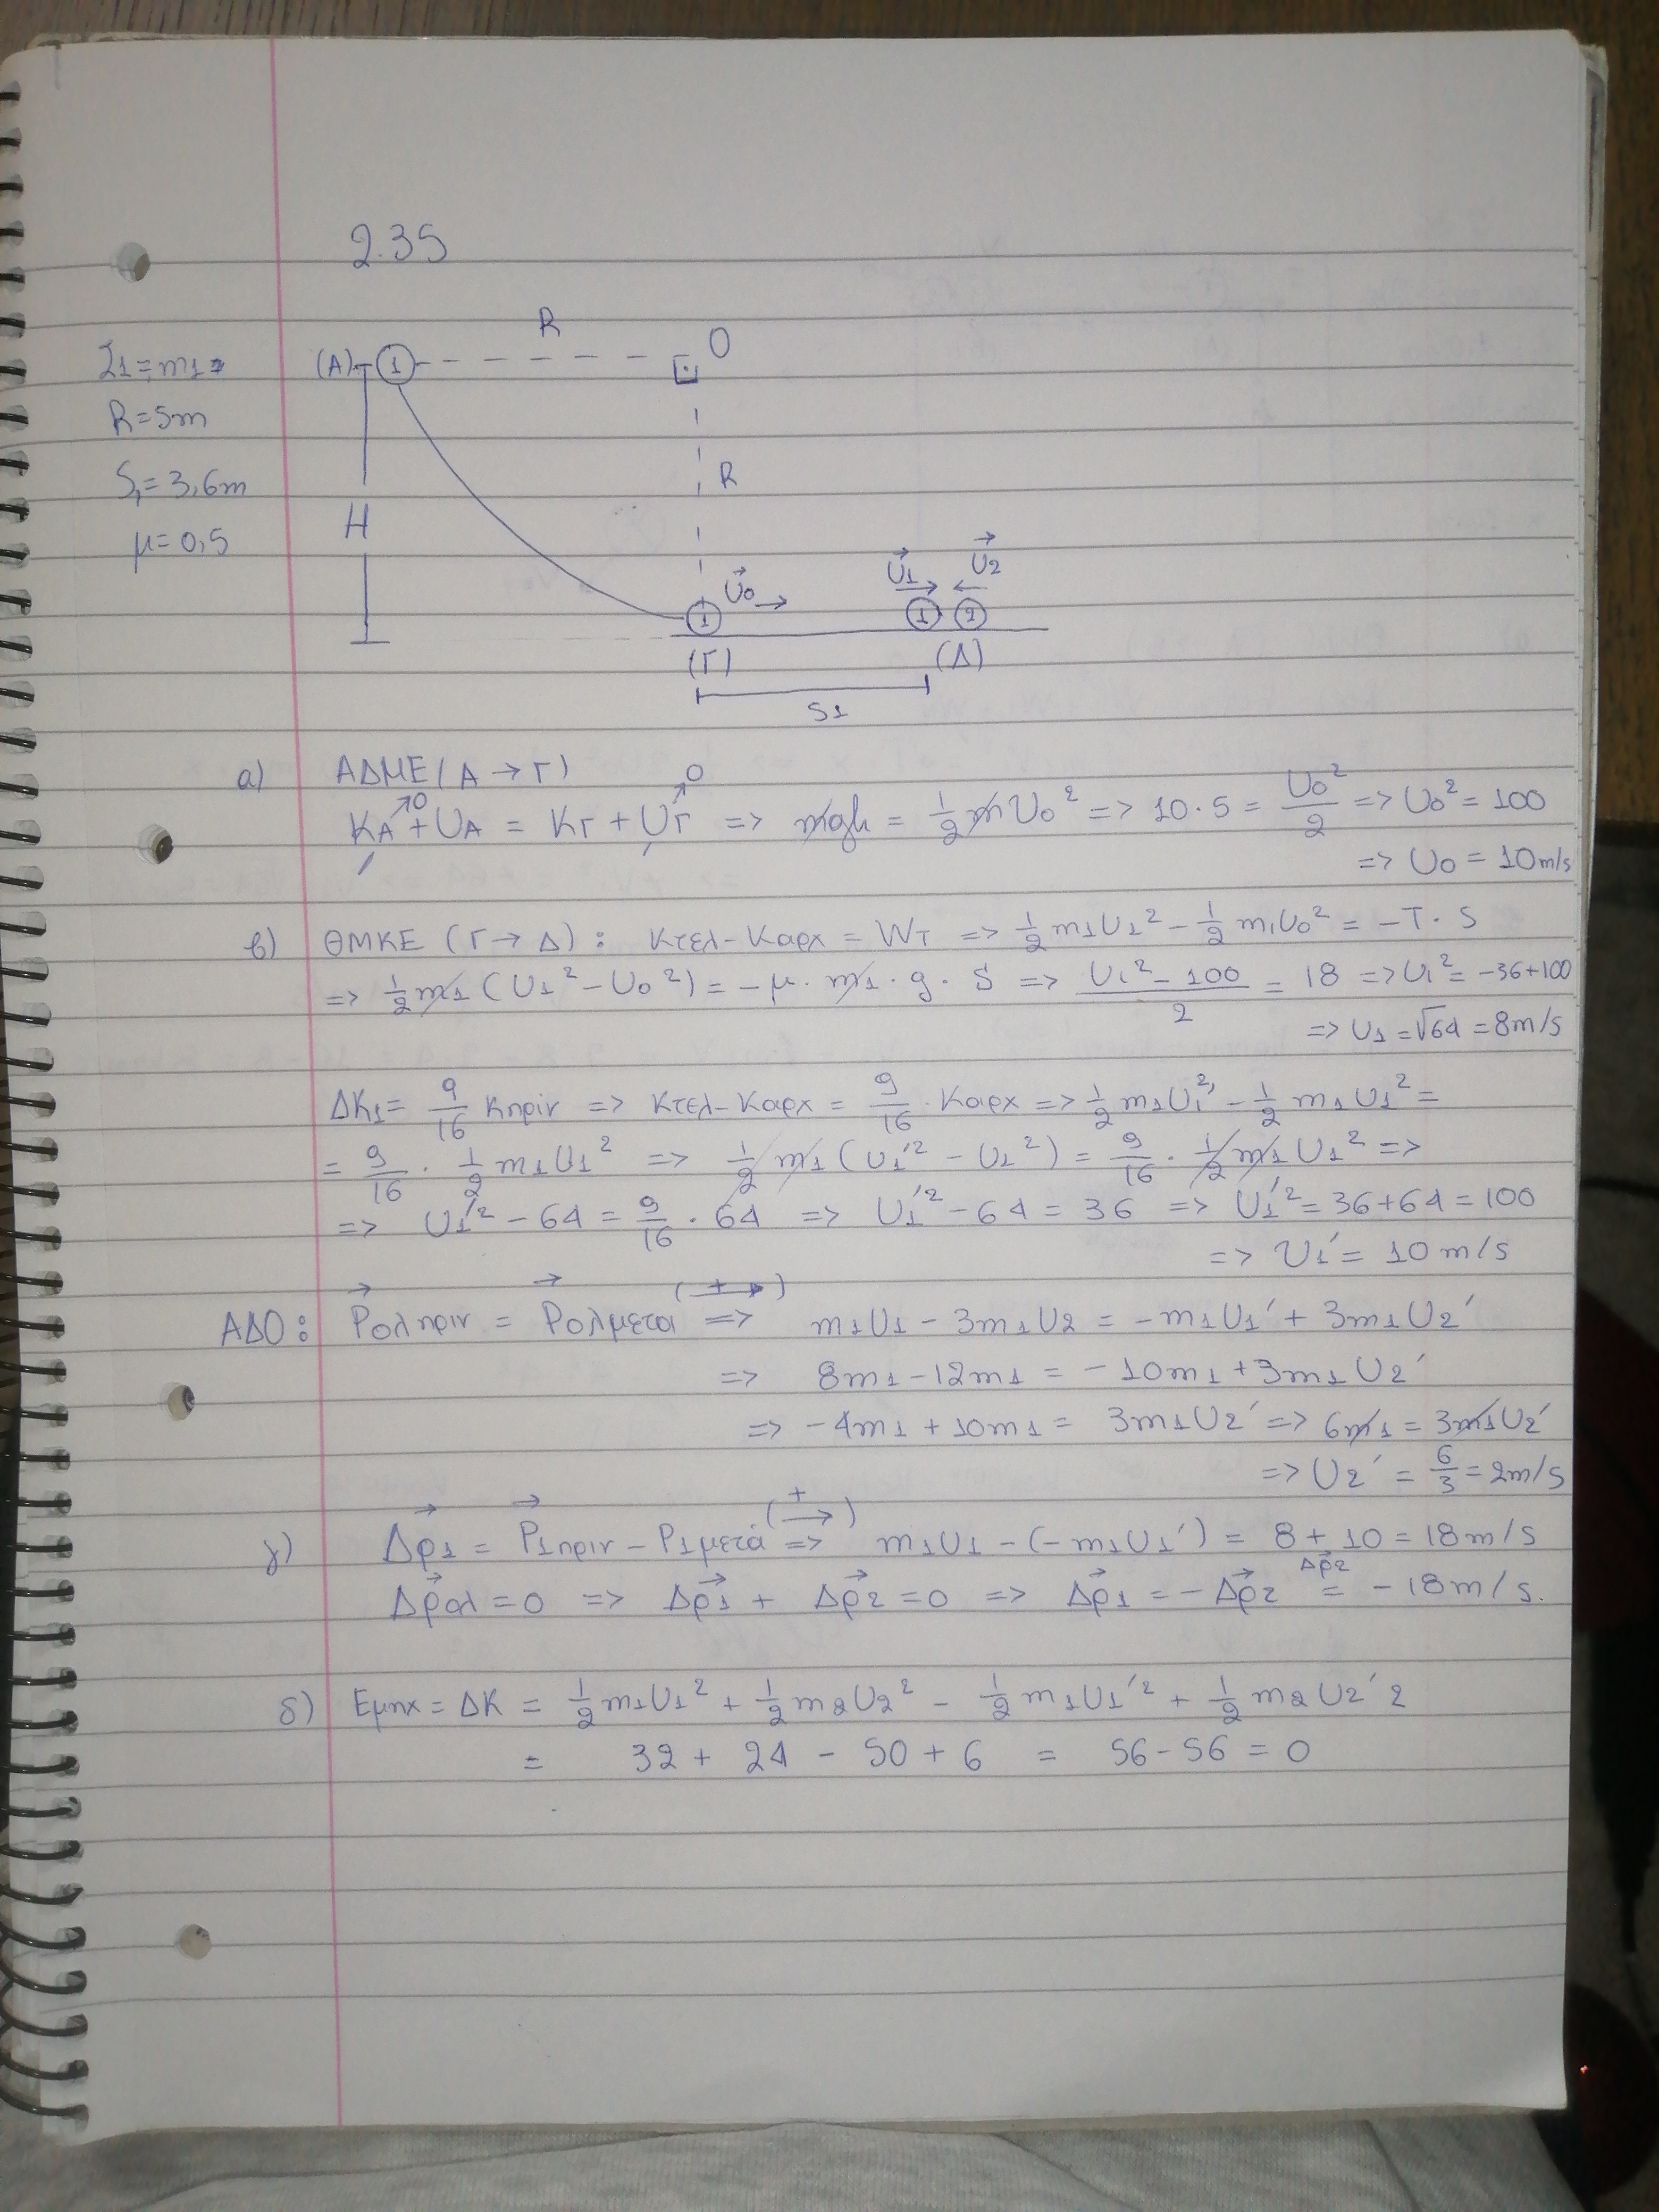 2.35
R
O
Σ1=m1=
(A)
1
R=5m
R
S1=3,6m
H
μ=0,5
U0
U1
U2
1
1
2
(Γ)
(Δ)
S1
α) ΑΔΜΕ(Α→Γ)
KA→0 + UA = KΓ + UΓ→0 => mgh = 1/2 mU0² => 10·5 = U0²/2 => U0² = 100
=> U0 = 10m/s
β) ΘΜΚΕ (Γ→Δ): Κτελ-Καρχ = WT => 1/2 m1U1² - 1/2 m1U0² = -T·S
=> 1/2 m1 (U1² - U0²) = -μ·m1·g·S => U1² - 100/2 = 18 => U1² = -36+100
=> U1 = √64 = 8m/s
ΔΚ1 = 9/16 Κπρίν => Κτελ-Καρχ = 9/16 · Καρχ => 1/2 m1U1'² - 1/2 m1U1² =
= 9/16 · 1/2 m1U1² => 1/2 m1 (U1'² - U1²) = 9/16 · 1/2 m1U1² =>
=> U1'² - 64 = 9/16 · 64 => U1'² - 64 = 36 => U1'² = 36+64 = 100
=> U1' = 10 m/s
ΑΔΟ: Pολπριν = Pολμετα (+→) => m1U1 - 3m1U2 = -m1U1' + 3m1U2'
=> 8m1 - 12m1 = -10m1 + 3m1U2'
=> -4m1 + 10m1 = 3m1U2' => 6m1 = 3m1U2'
=> U2' = 6/3 = 2m/s
γ) Δp1 = P1πριν - P1μετά (+→) => m1U1 - (-m1U1') = 8 + 10 = 18m/s
Δpολ = 0 => Δp1 + Δp2 = 0 => Δp1 = -Δp2 Δp2 = -18m/s.
δ) Εμηχ = ΔΚ = 1/2 m1U1² + 1/2 m2U2² - 1/2 m1U1'² + 1/2 m2U2'2
= 32 + 24 - 50 + 6 = 56 - 56 = 0